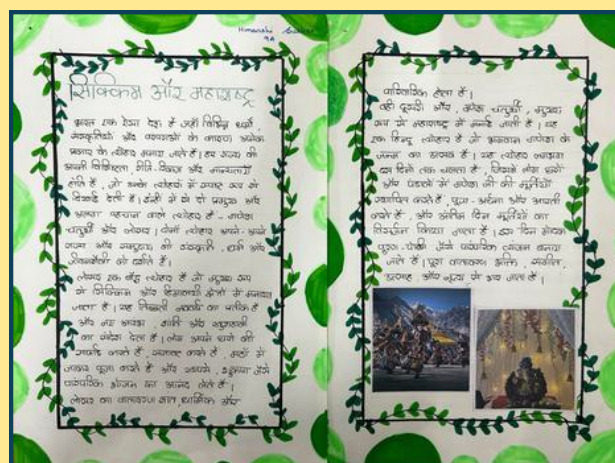 Himanshi
9A
सिक्किम और महाराष्ट्र
भारत एक ऐसा देश है जहाँ विभिन्न धर्मों,
संस्कृतियों और परंपराओं के कारण अनेक
प्रकार के त्योहार मनाए जाते हैं। हर राज्य की
अपनी विशिष्टता, रीति-रिवाज और मान्यताएं
होती हैं, जो उनके त्योहारों में स्पष्ट रूप से
दिखाई देती हैं। इन्हीं में से दो प्रमुख और
अलग पहचान वाले त्योहार हैं - गणेश
चतुर्थी और लोसर। दोनों त्योहार अपने-अपने
राज्य और समुदाय की संस्कृति, धर्म और
जीवनशैली को दर्शाते हैं।
लोसर एक बौद्ध त्योहार है जो मुख्य रूप
से सिक्किम और हिमालयी क्षेत्रों में मनाया
जाता है। यह तिब्बती नववर्ष का प्रतीक है
और नए आरंभ, शांति और खुशहाली
का संदेश देता है। लोग अपने घरों की
सफाई करते हैं, सजावट करते हैं, मठों में
जाकर पूजा करते हैं और जैसे
पारंपरिक भोजन का आनंद लेते हैं।
लोसर का वातावरण शांत, धार्मिक और
पारिवारिक होता है।
वहीं दूसरी ओर, गणेश चतुर्थी, मुख्य
रूप से महाराष्ट्र में मनाई जाती है। यह
एक हिन्दू त्योहार है जो भगवान गणेश के
जन्म का उत्सव है। यह त्योहार लगभग
दस दिनों तक चलता है, जिसमें लोग घरों
और पंडालों में गणेश जी की मूर्तियाँ
स्थापित करते हैं, पूजा-अर्चना और आरती
करते हैं, और अंतिम दिन मूर्तियों का
विसर्जन किया जाता है। इस दिन मोदक
पूरन-पोली जैसे पारंपरिक व्यंजन बनाए
जाते हैं। पूरा वातावरण भक्ति, संगीत,
उत्साह, और नृत्य से भर जाता है।